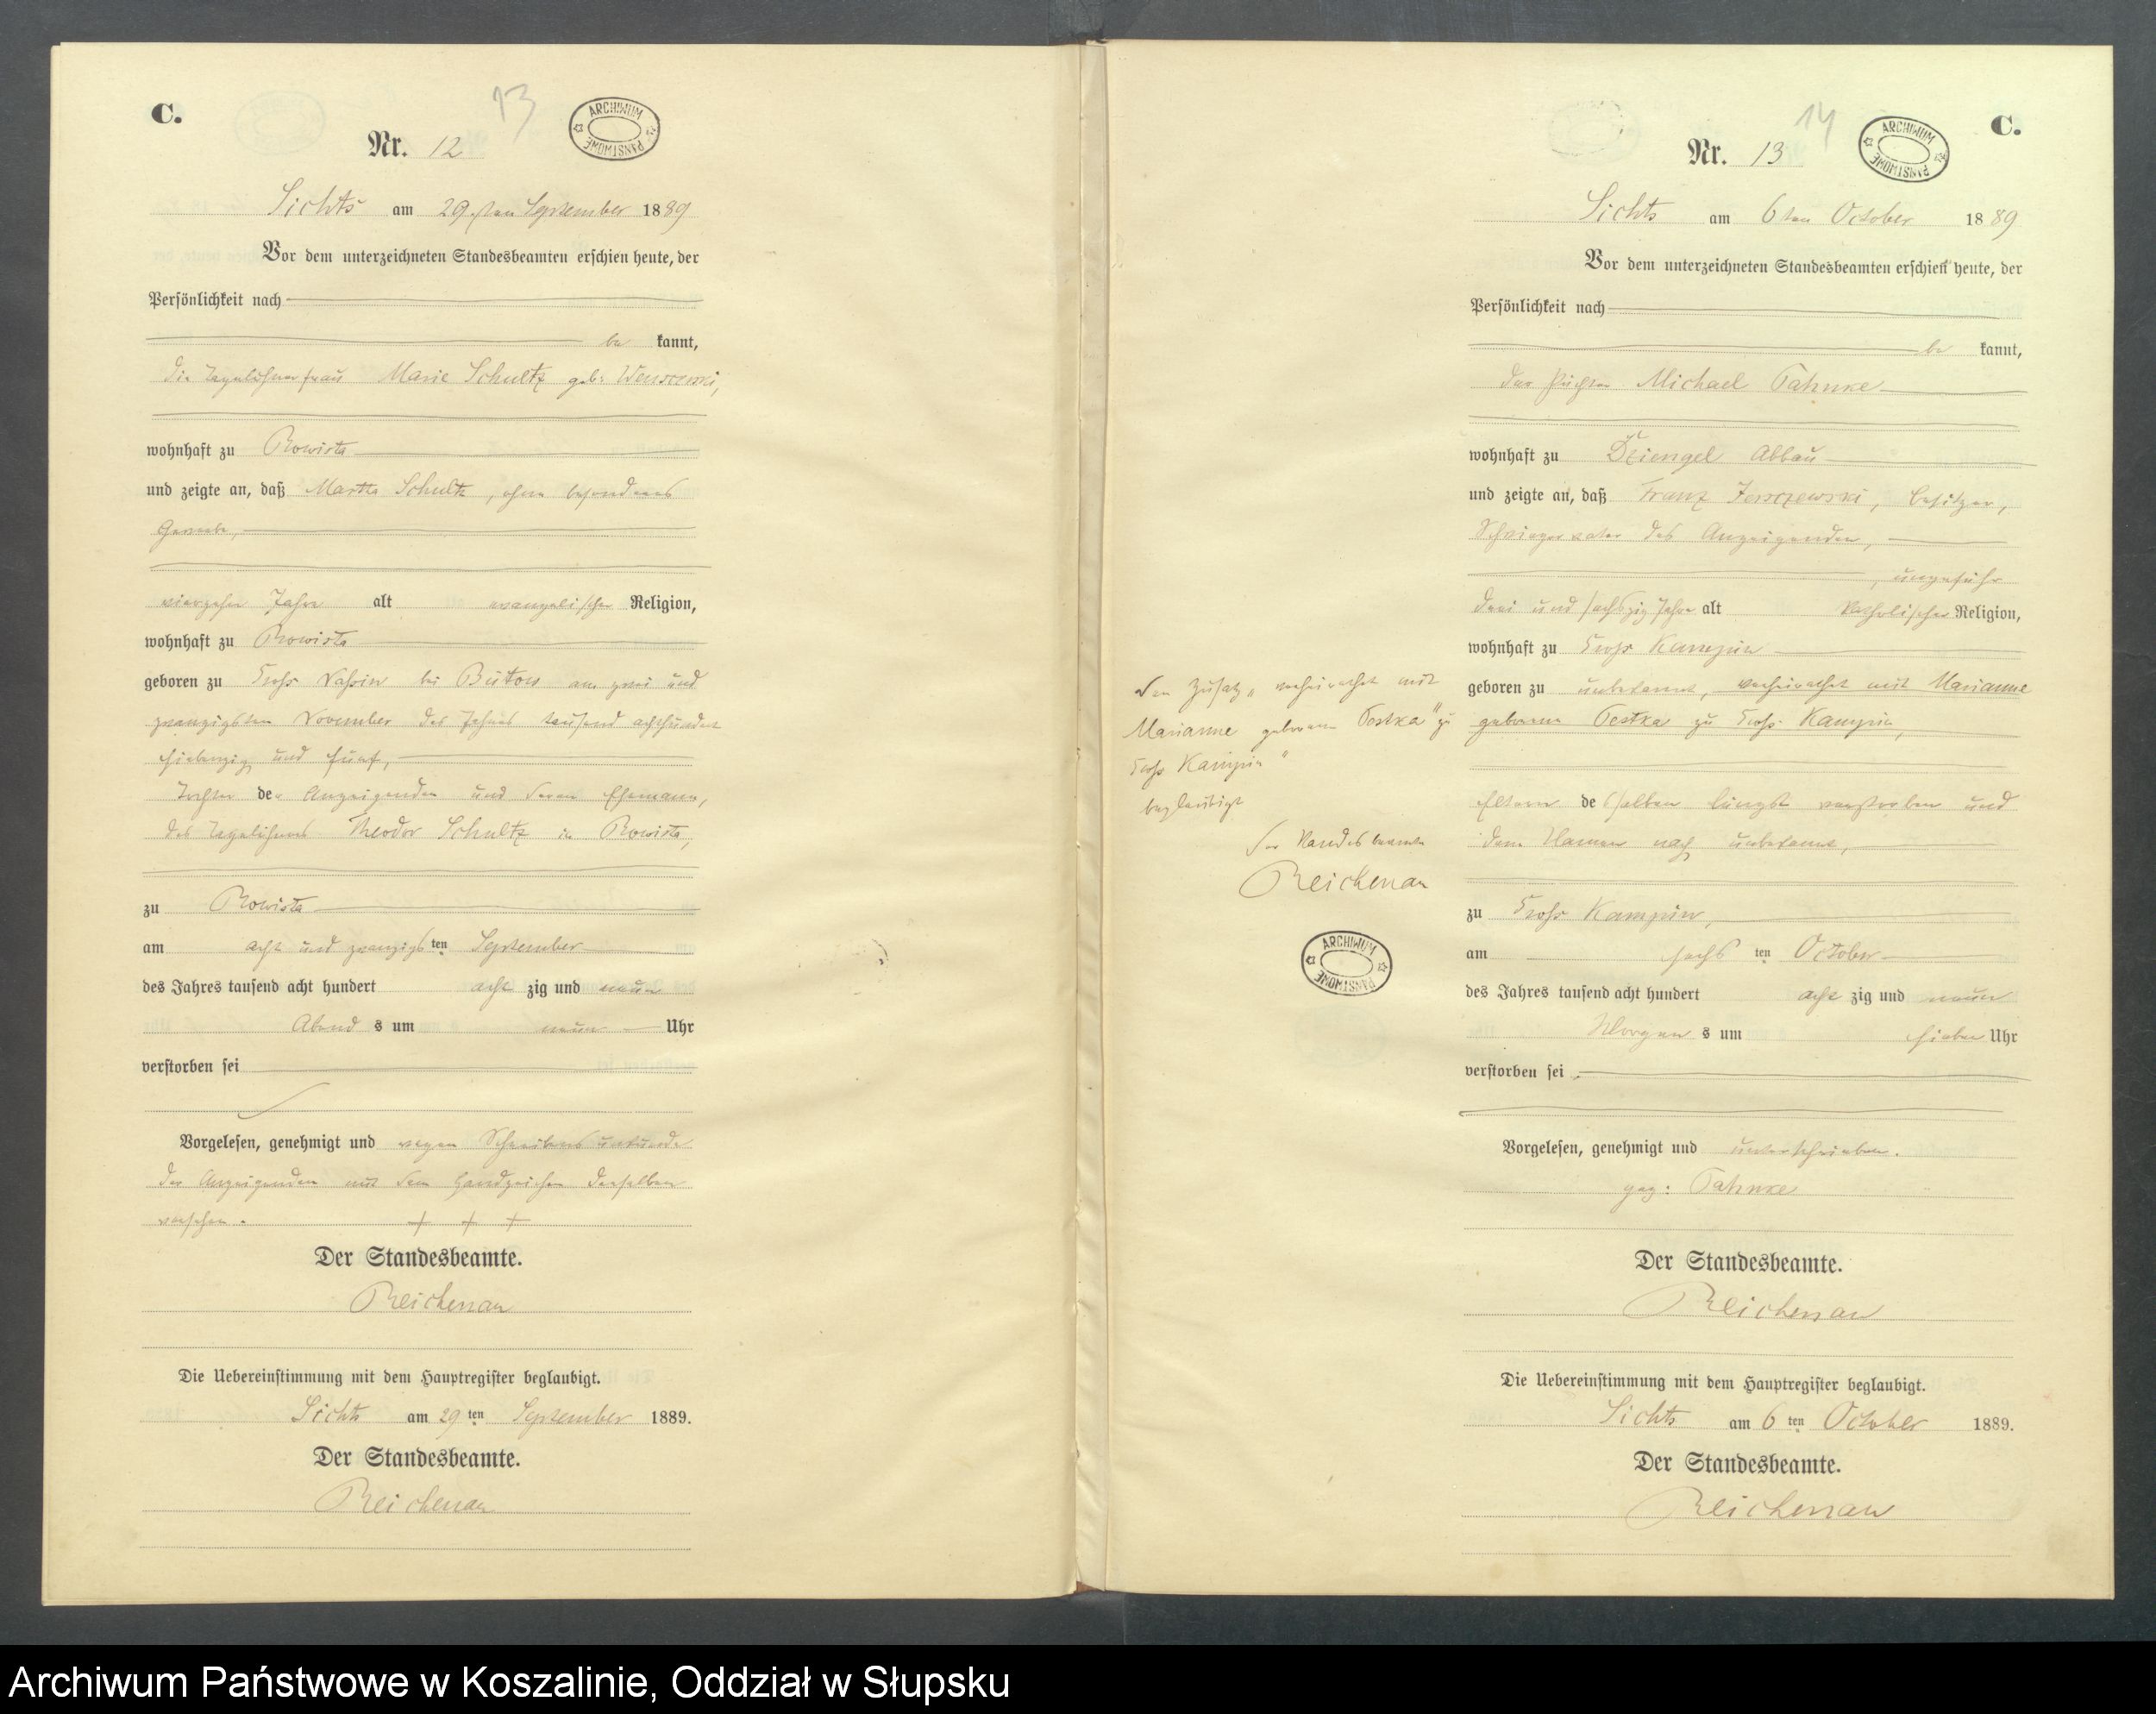 C.
13
ARCHIWUM PAŃSTWOWE
Nr. 12
Sichts am 29.ten September 1889
Vor dem unterzeichneten Standesbeamten erschien heute, der
Persönlichkeit nach
be kannt,
die Tagelöhnerfrau Marie Schultz geb:
wohnhaft zu
und zeigte an, daß Martha Schultz, ohne besonderes
Gewerbe,
vierzehn Jahre alt evangelischer Religion,
wohnhaft zu
geboren zu Groß bei Bütow am zwei und
zwanzigsten November des Jahres tausend achthundert
siebenzig und fünf,
Tochter der Anzeigenden und deren Ehemann,
des Tagelöhners Theodor Schultz in
zu
am acht und zwanzigsten September
des Jahres tausend acht hundert acht zig und neun
Abend s um neun Uhr
verstorben sei
Vorgelesen, genehmigt und wegen Schreibensunkunde
der Anzeigenden mit dem Handzeichen derselben
versehen. + + +
Der Standesbeamte.
Reichenau
Die Uebereinstimmung mit dem Hauptregister beglaubigt.
Sichts am 29 ten September 1889.
Der Standesbeamte.
Reichenau
C.
14
ARCHIWUM PAŃSTWOWE
Nr. 13
Sichts am 6ten October 1889
Vor dem unterzeichneten Standesbeamten erschien heute, der
Persönlichkeit nach
be kannt,
der Michael Jahnke
wohnhaft zu Dziengel Abbau
und zeigte an, daß Franz Besitzer,
Schwiegervater des Anzeigenden,
ungefähr
drei und sechszig Jahre alt katholischer Religion,
wohnhaft zu Groß Kampin
geboren zu unbekannt, verheirathet mit Marianne
geborene Pestka zu Groß Kampin,
Eltern desselben längst verstorben und
dem Namen nach unbekannt,
zu Groß Kampin,
am sechs ten October
des Jahres tausend acht hundert acht zig und neun
Morgen s um sieben Uhr
verstorben sei
Vorgelesen, genehmigt und unterschrieben.
gez: Jahnke
Der Standesbeamte.
Reichenau
Die Uebereinstimmung mit dem Hauptregister beglaubigt.
Sichts am 6 ten October 1889.
Der Standesbeamte.
Reichenau
Den Zusatz „verheirathet mit
Marianne geborene Pestka" zu
Groß Kampin"
beglaubigt
Der Standesbeamte
Reichenau
ARCHIWUM PAŃSTWOWE
Archiwum Państwowe w Koszalinie, Oddział w Słupsku